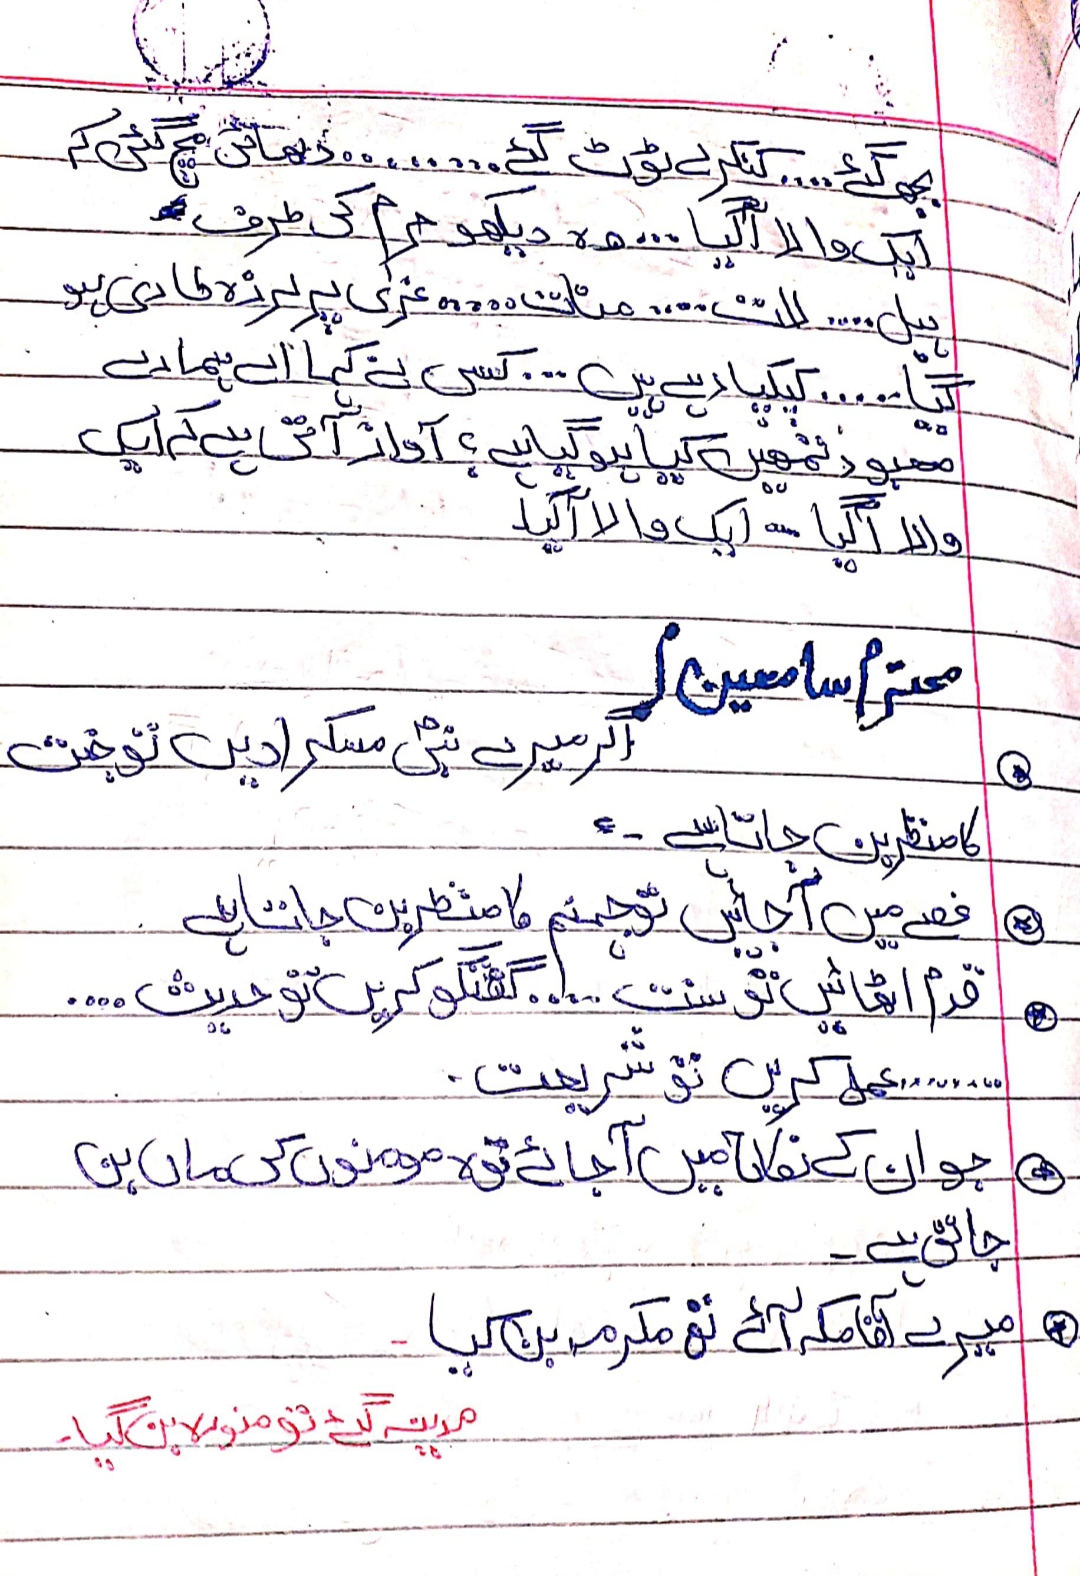 بجھ گئے .... کنگرے ٹوٹ گئے ......... دھائی مچ گئی کہ
ایک والا آگیا .... وہ دیکھو حرم کی طرف
ہبل .... لات .... منات ..... عزی پر لرزہ طاری ہو
گیا ..... کپکپا رہے ہیں ... کسی نے کہا اے ہمارے
معبود تمھیں کیا ہو گیا ہے ؟ آواز آتی ہے کہ ایک
والا آگیا - ایک والا آگیا
محترم سامعین!
اگر میرے نبیؐ مسکرا دیں تو جنت
کا منظر بن جاتا ہے -
غصے میں آجائیں تو جہنم کا منظر بن جاتا ہے
قدم اٹھائیں تو سنت ..... گفتگو کریں تو حدیث ....
........ عمل کریں تو شریعت -
جو ان کے نکاح میں آجائے تو وہ مومنوں کی ماں بن
جاتی ہے -
میرے آقا مکہ آئے تو مکرمہ بن گیا -
مدینہ گئے تو منورہ بن گیا -